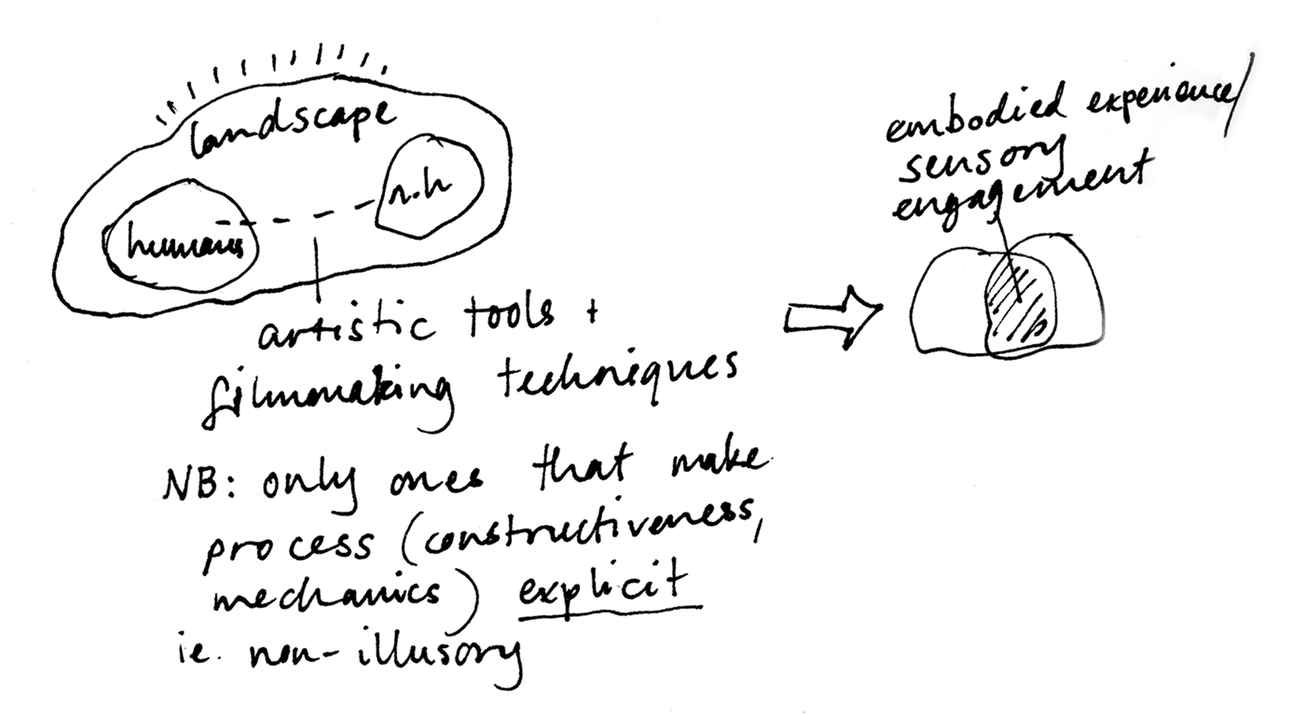 landscape
humans
n.h
artistic tools +
filmmaking techniques
NB: only ones that make
process (constructiveness,
mechanics) explicit
ie. non-illusory
embodied experience/
sensory
engagement